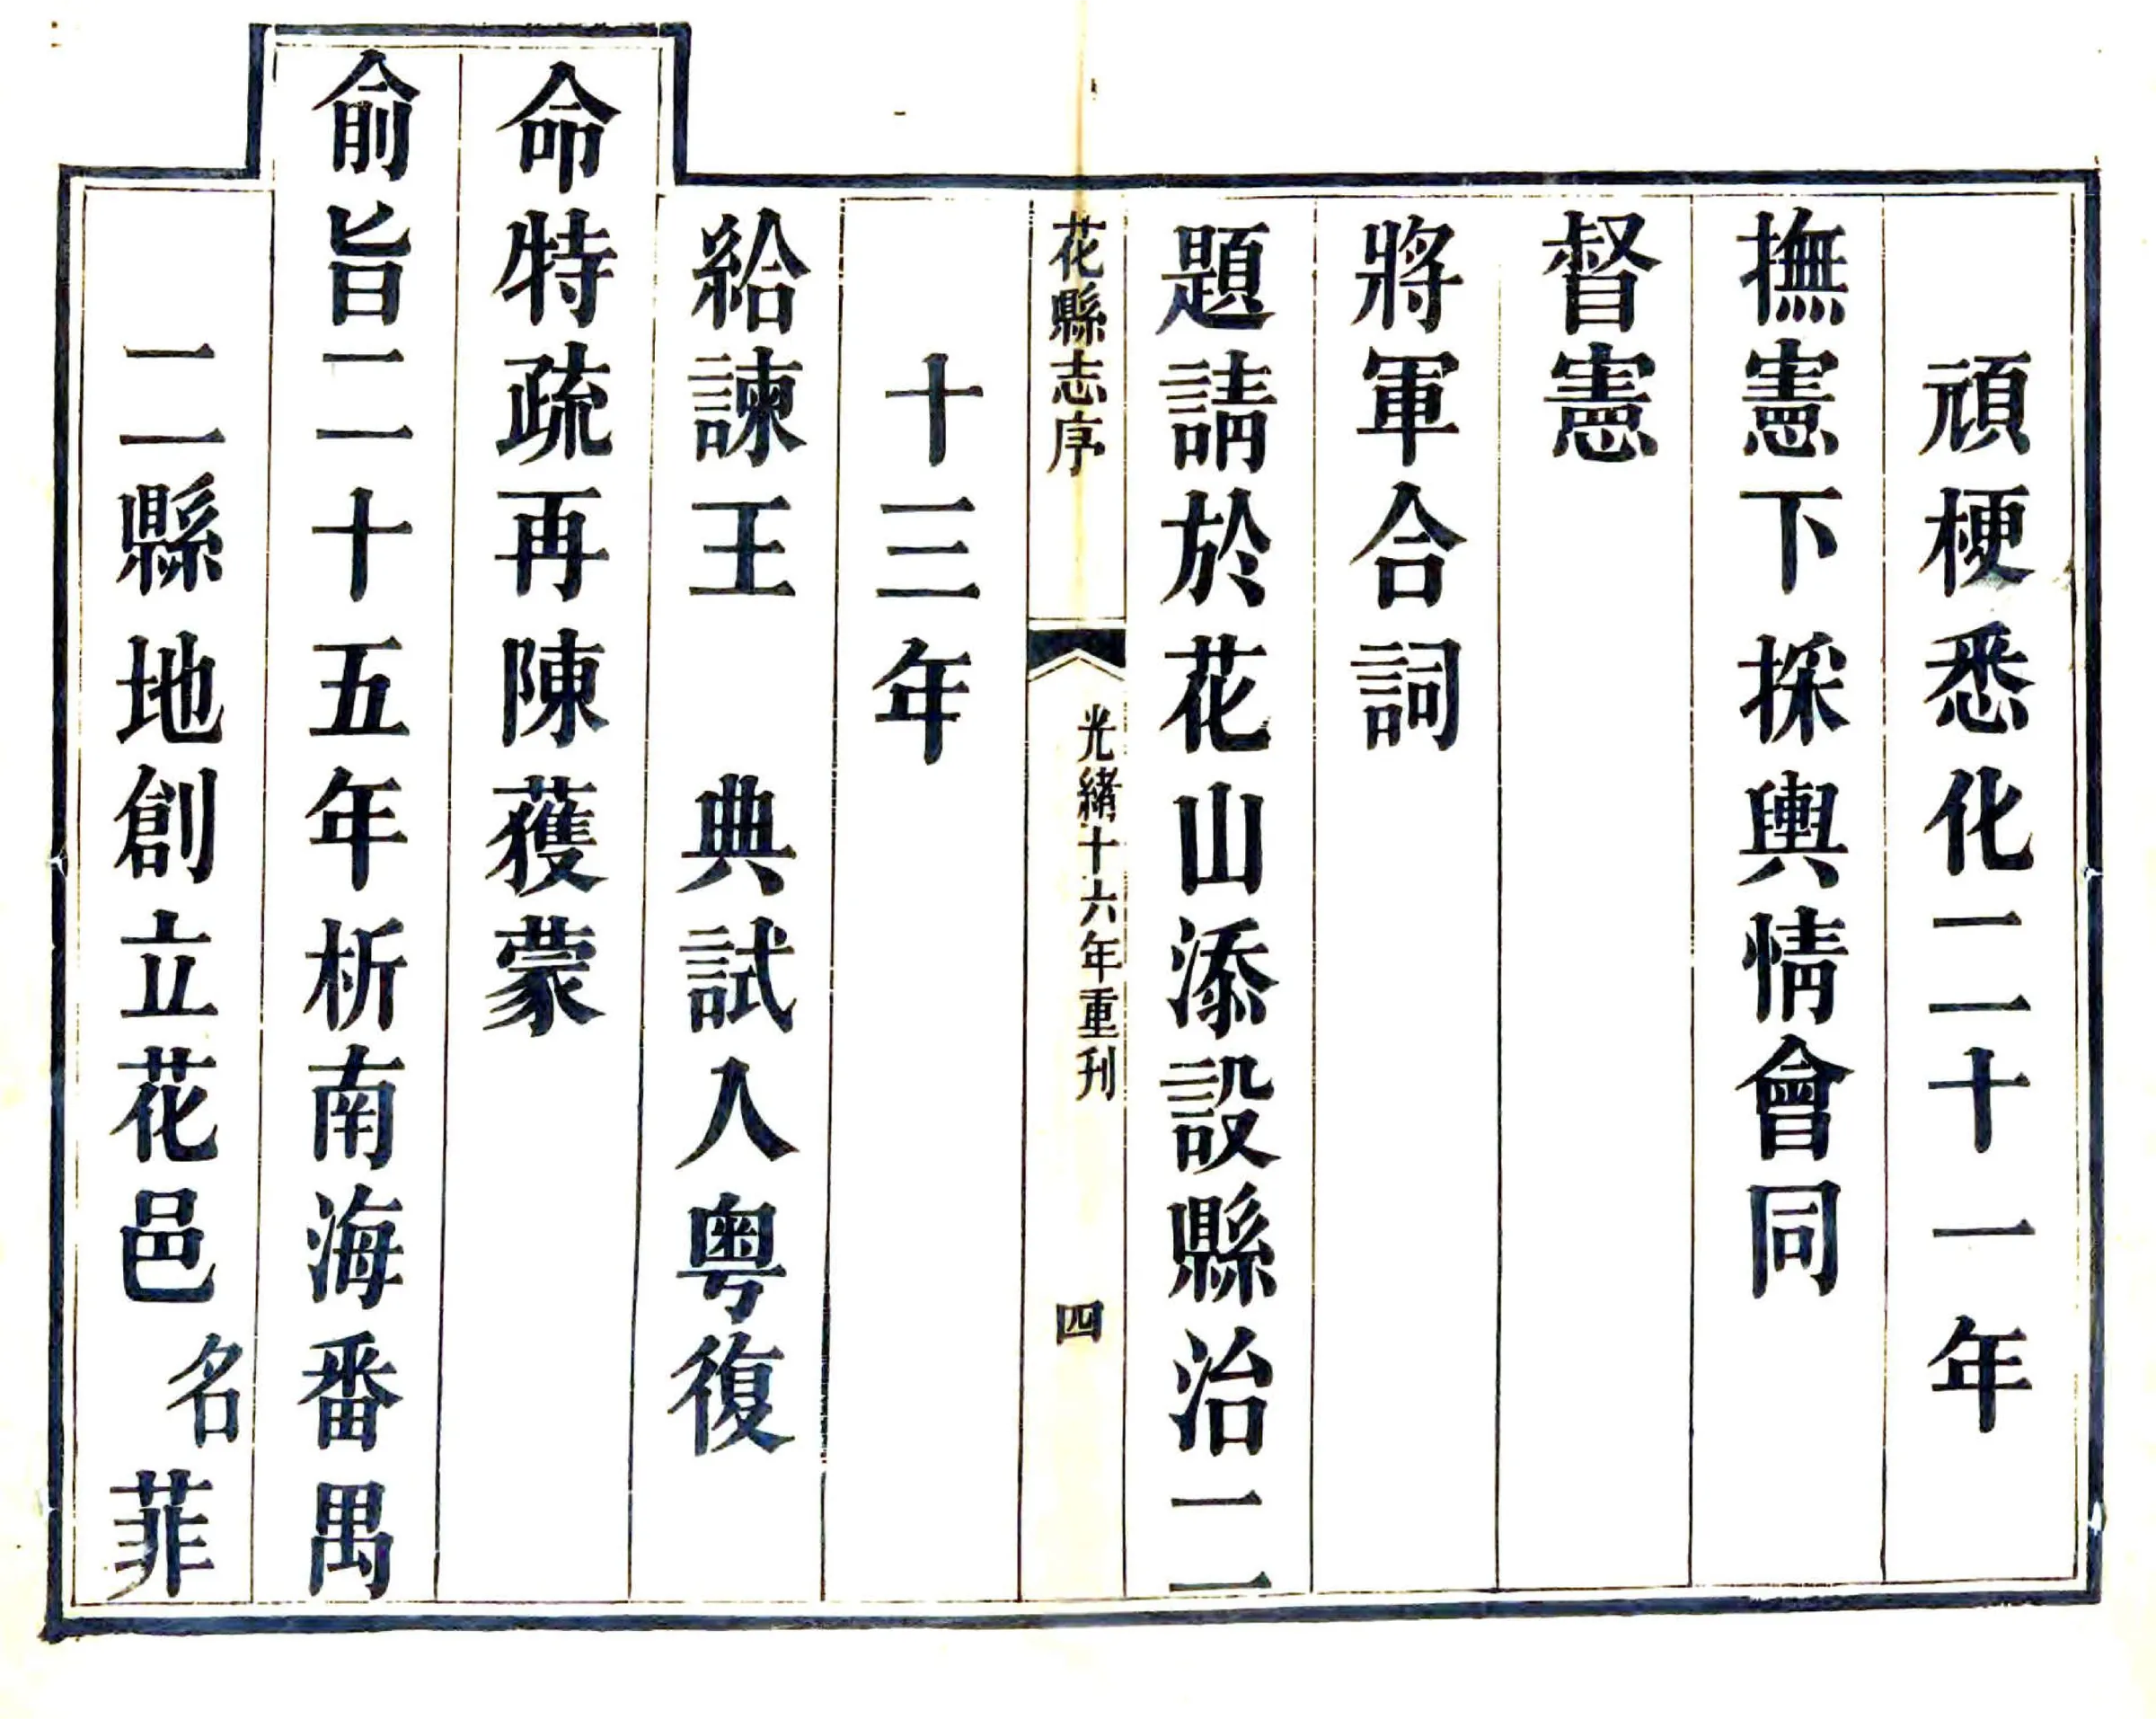 頑梗悉化二十一年
撫憲下採輿情會同
督憲
將軍合詞
題請於花山添設縣治二
花縣志序
光緒十六年重刊
四
十三年
給諫王 典試入粵復
命特疏再陳獲蒙
俞旨二十五年析南海番禺
二縣地創立花邑名菲